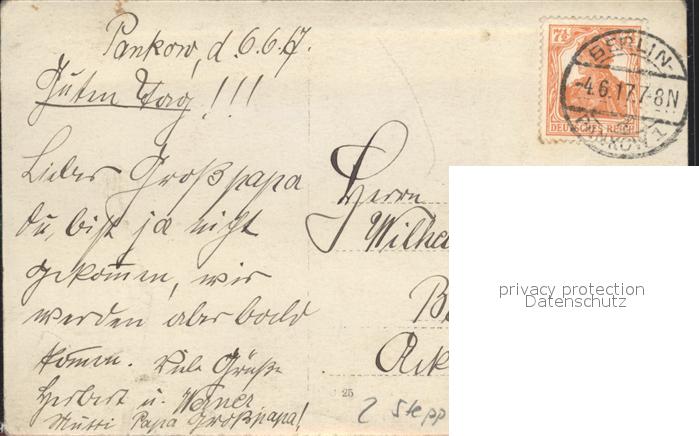 Pankow, d. 6.6.17.
Guten Tag!!!
Lieber Großpapa
du bist ja nicht
gekommen, wir
werden aber bald
kommen. Viele Grüße
Herbert u. Werner
Mutti Papa Großpapa!
7½
DEUTSCHES REICH
BERLIN-
-4.6.17.7-8N
PANKOW 1
Herrn
Wilhe
25
2 Stepp
privacy protection
Datenschutz